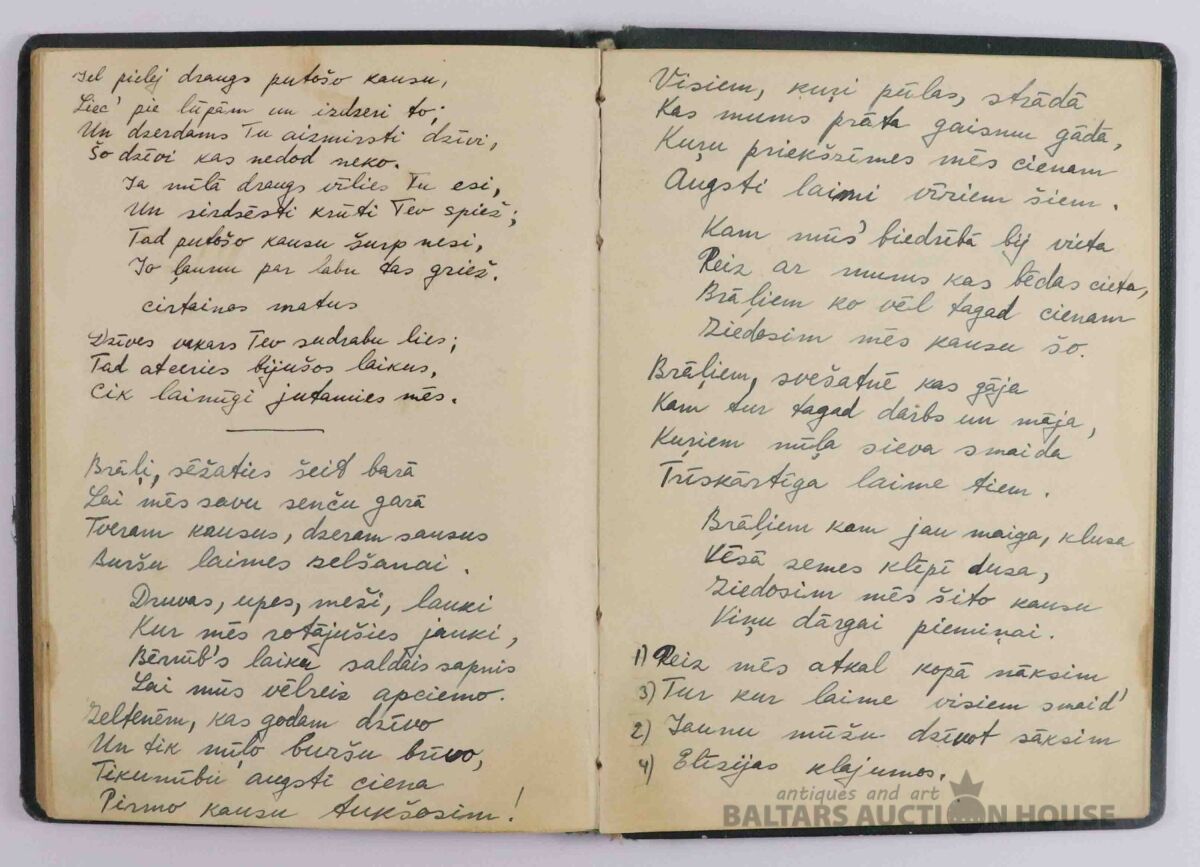 Iel pielej draugs putošo kausu,
Liec' pie lūpām un izdzeri to;
Un dzerdams Tu aizmirsti dzīvi,
Šo dzīvi kas nedod neko.
Ja mīlā draugs vīlies Tu esi,
Un sirdsēsti krūti Tev spiež;
Tad putošo kausu šurp nesi,
Jo ļaunu par labu tas griež.
cirtainos matus
Dzīves vakars Tev sudrabu lies;
Tad atceries bijušos laikus,
Cik laimīgi jutamies mēs.
Brāļi, sēžaties šeit barā
Lai mēs savu senču garā
Tveram kausus, dzeram sausus
Buršu laimes zelšanai.
Druvas, upes, meži, lauki
Kur mēs rotājušies jauki,
Bērnīb's laika saldais sapnis
Lai mūs vēlreiz apciemo.
Zeltenēm, kas godam dzīvo
Un tik mīļo buršu brīvo,
Tikumību augsti ciena
Pirmo kausu tukšosim!
Visiem, kuŗi pūlas, strādā
Kas mums prāta gaismu gādā,
Kuŗu priekšzīmes mēs cienam
Augsti laimi vīriem šiem.
Kam mūs' biedrībā bij vieta
Reiz ar mums kas bēdas cieta,
Brāļiem ko vēl tagad cienam
Ziedosim mēs kausu šo.
Brāļiem, svešatnē kas gāja
Kam tur tagad darbs un māja,
Kuŗiem mīļa sieva smaida
Trīskārtīga laime tiem.
Brāļiem kam jau maiga, klusa
Vēsā zemes klēpī dusa,
Ziedosim mēs šito kausu
Viņu dārgai piemiņai.
1) Reiz mēs atkal kopā nāksim
3) Tur kur laime visiem smaid'
2) Jaunu mūžu dzīvot sāksim
4) Elīzijas klajumos.
antiques and art
BALTARS AUCTION HOUSE